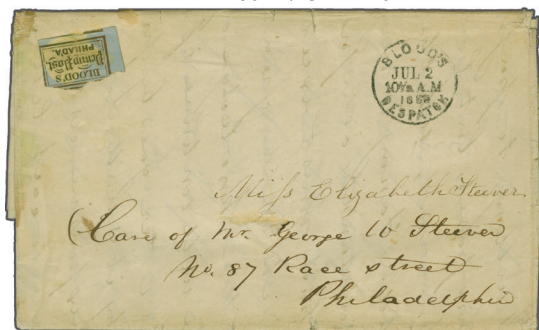 BLOOD'S
Penny Post
PHILAD'A.
BLOOD'S
JUL 2
10½ A.M
DESPATCH
Miss Elizabeth Steever
(Care of Mr. George W Steever
No. 87 Race street
Philadelphia